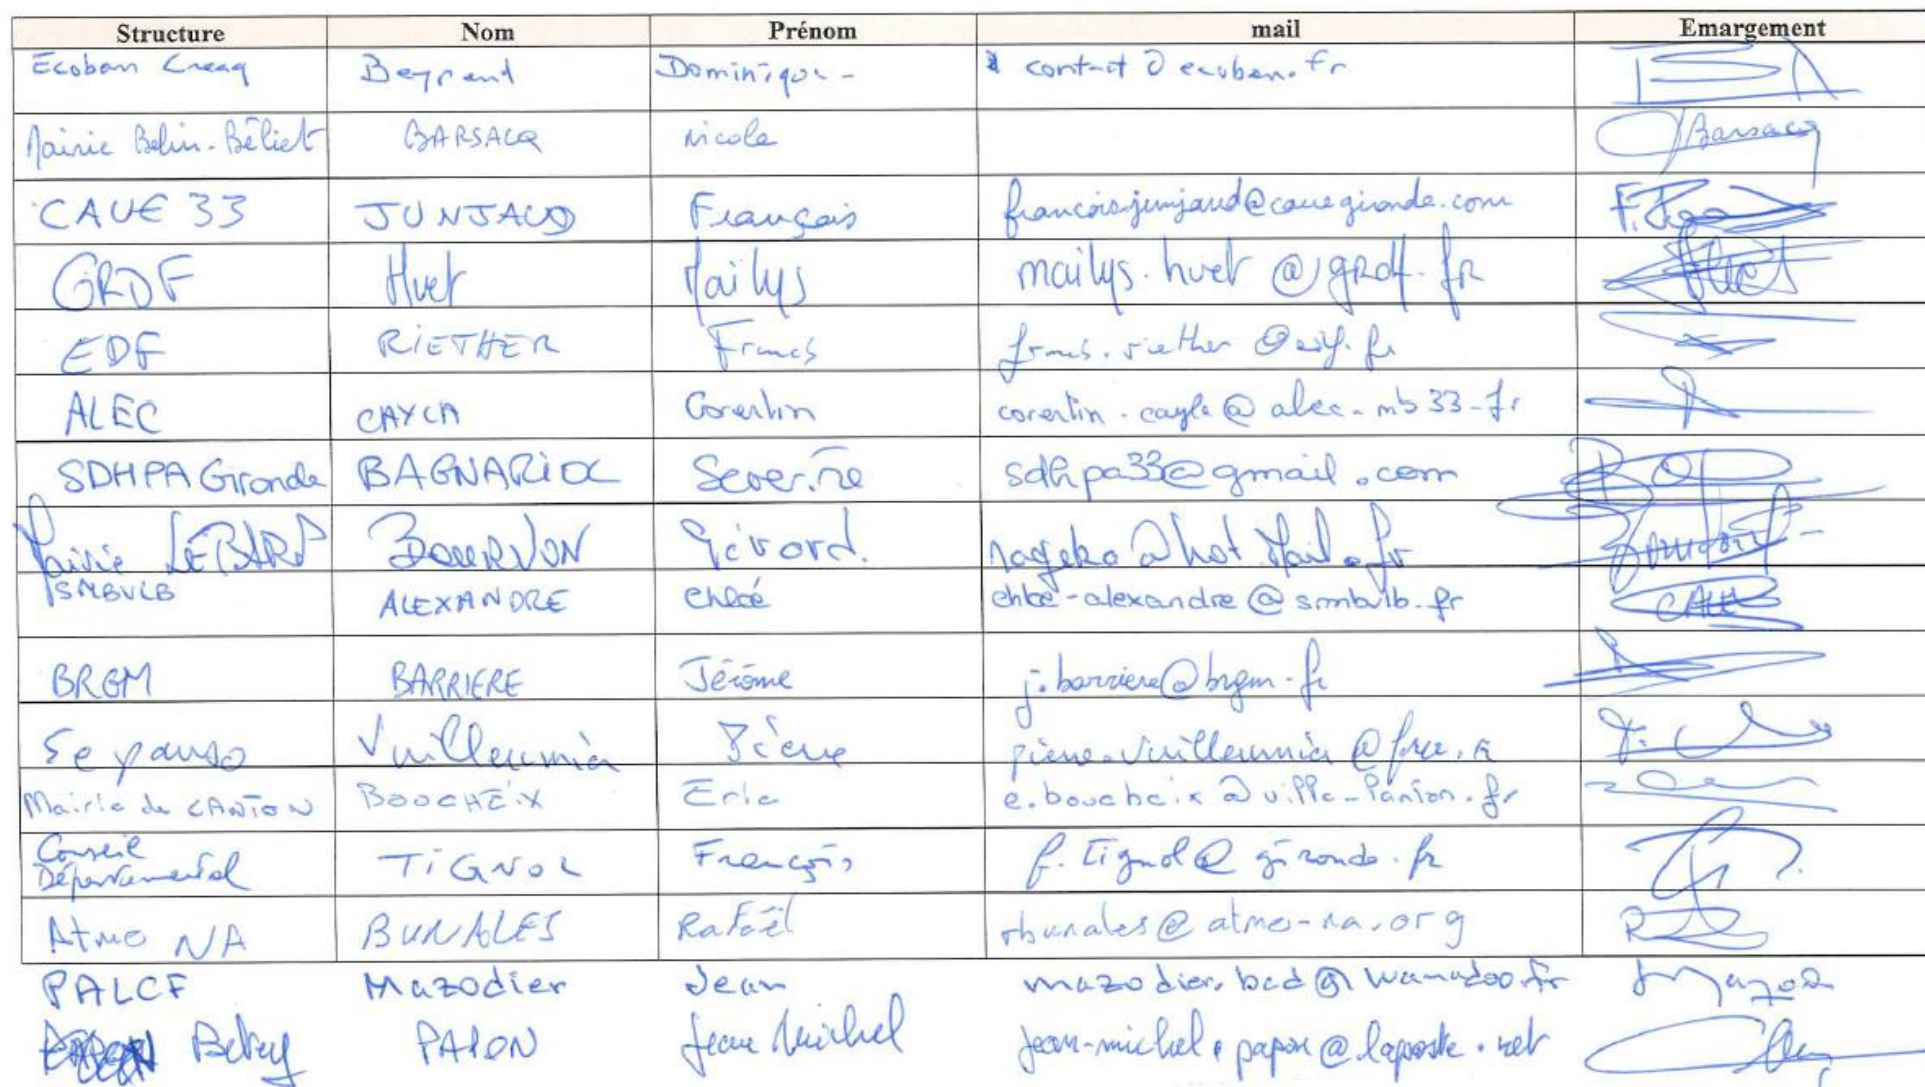 Structure Nom Prénom mail Emargement
Ecoban Creaq Beyrand Dominique - contact @ ecoban.fr
Mairie Belin-Béliet BARSACQ Nicole Barsacq
CAUE 33 JUNJAUD François francois.junjaud@cauegironde.com
GRDF Huet Maïlys mailys.huet @grdf.fr Huet
EDF RIETHER Francs francs.riether @edf.fr
ALEC CAYLA Corentin corentin.cayla@alec-mb33.fr
SDHPA Gironde BAGNARIOL Severine sdhpa33@gmail.com
Mairie LE BARP BOURDON Gérard. nageko@hotMail.fr
SMBVLB ALEXANDRE Chloé chloe-alexandre@smbvlb.fr
BRGM BARRIERE Jérôme j.barriere@brgm.fr
Sepanso Vuilleumier Pierre pierre.vuilleumier@free.fr
Mairie de LANTON BOUCHEIX Eric e.boucheix@ville-lanton.fr
Conseil
Départemental TIGNOL François f.tignol@gironde.fr
Atmo NA BUNALES Rafaël rbunales@atmo-na.org
PALCF Mazodier Jean mazodier.bcd@wanadoo.fr
Betey PAPON Jean Michel jean-michel.papon@laposte.net